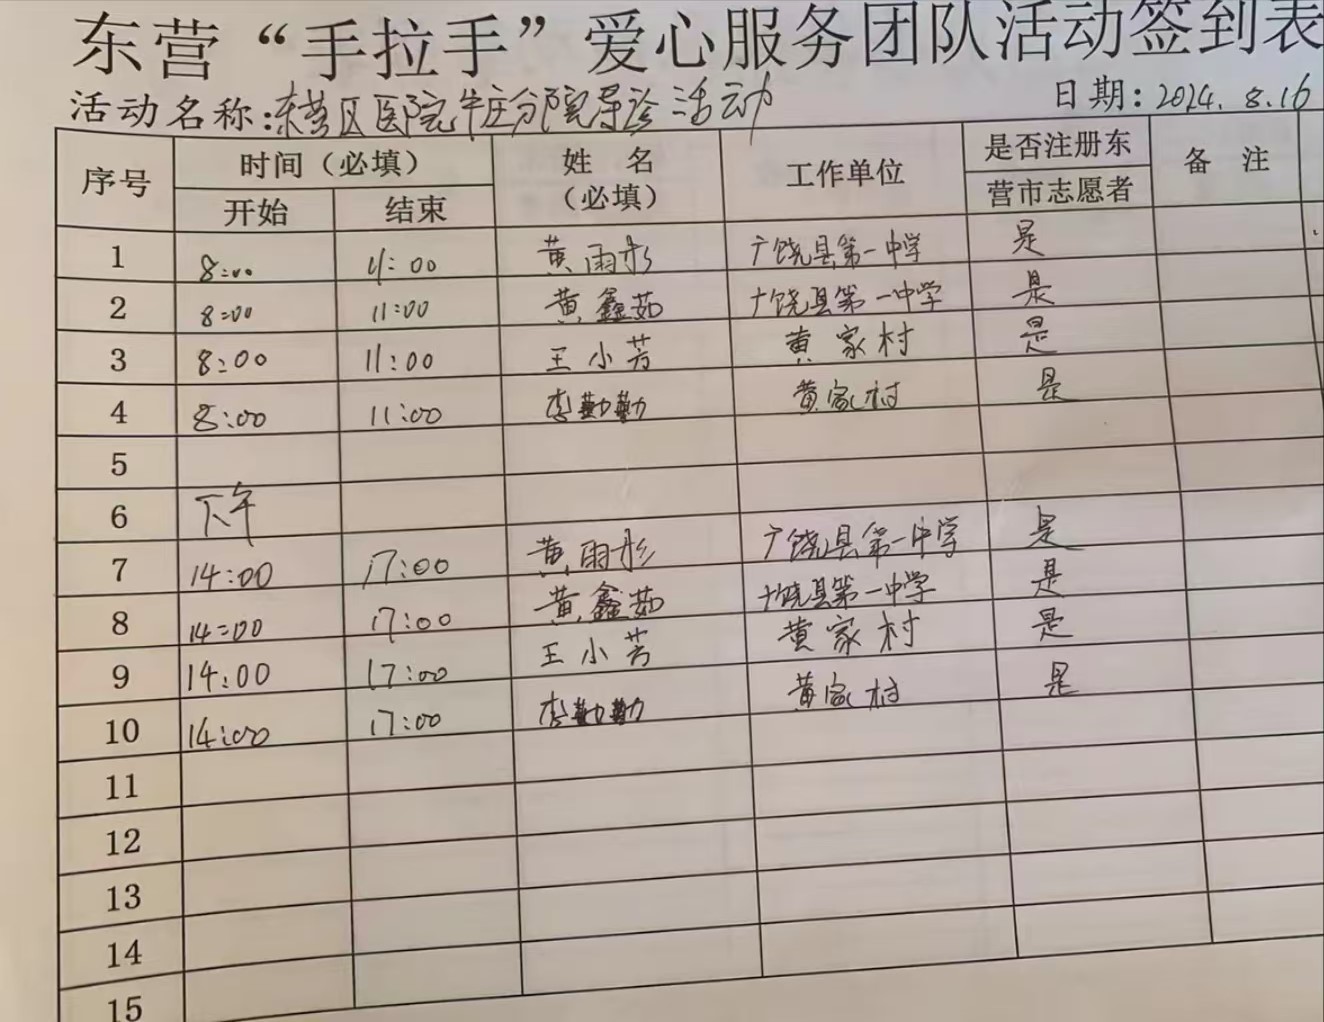 东营“手拉手”爱心服务团队活动签到表
活动名称:东营区医院牛庄分院导诊活动 日期:2024.8.16
序号 时间(必填) 姓名(必填) 工作单位 是否注册东营市志愿者 备注
开始 结束
1 8:00 11:00 黄雨杉 广饶县第一中学 是
2 8:00 11:00 黄鑫茹 广饶县第一中学 是
3 8:00 11:00 王小芳 黄家村 是
4 8:00 11:00 李勤勤 黄家村 是
5
6 下午
7 14:00 17:00 黄雨杉 广饶县第一中学 是
8 14:00 17:00 黄鑫茹 广饶县第一中学 是
9 14:00 17:00 王小芳 黄家村 是
10 14:00 17:00 李勤勤 黄家村 是
11
12
13
14
15